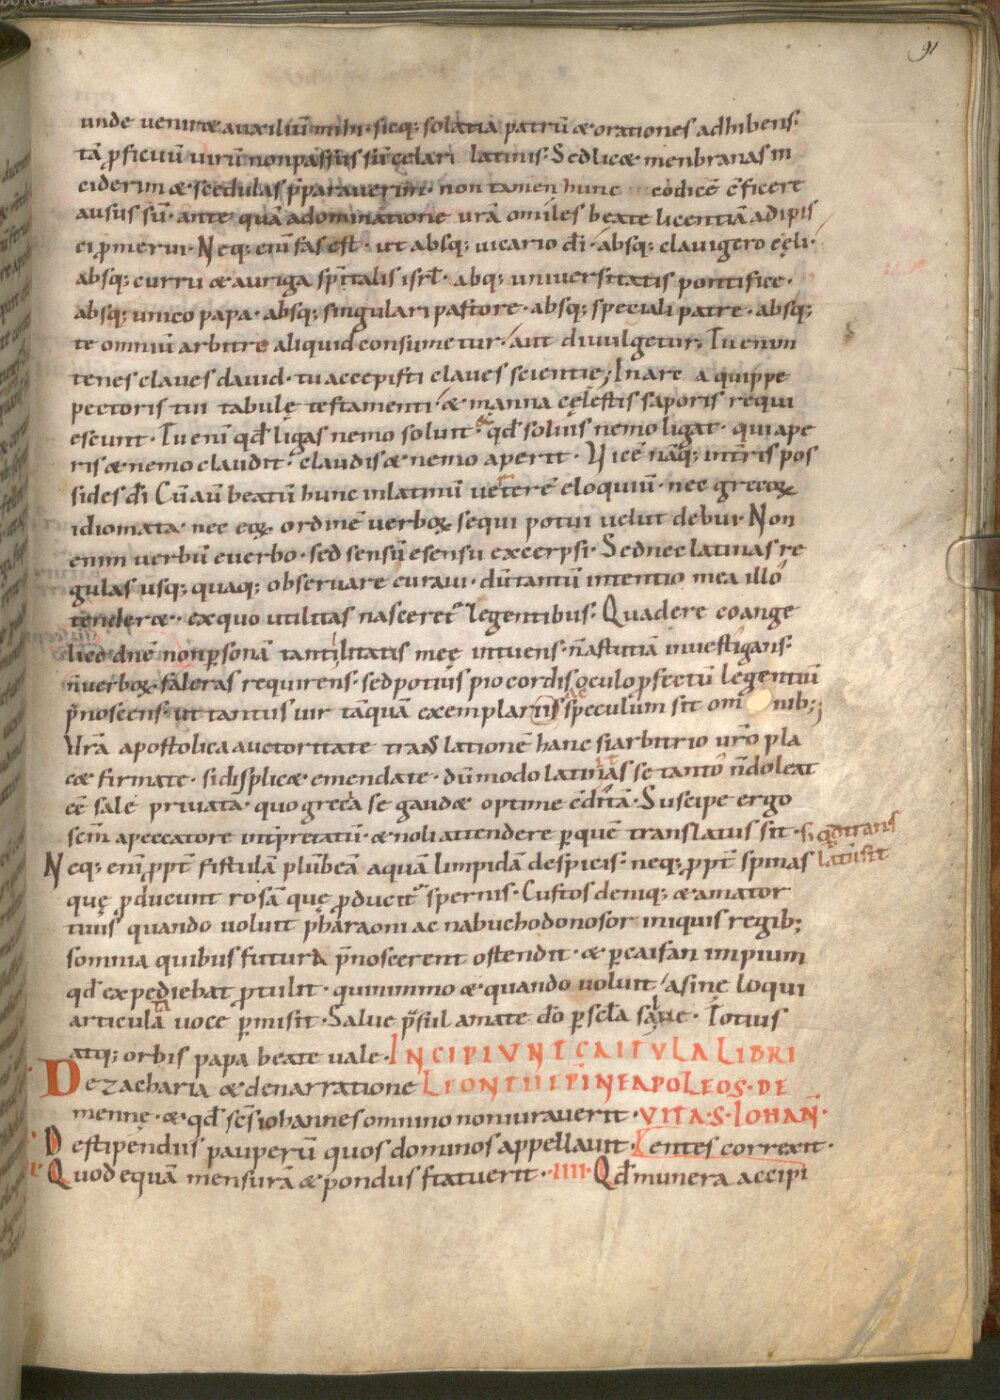 91
unde veniret auxiliū mihi · sicq; solatia patrū & orationes adhibens·
tā ꝓficuū virū non passus sū celari latinis· Sed licet menbranas in
ciderim & scedulas p̄paraverim· non tamen hunc codicē c̄ficere
ausus sū· ante quā adominatione vr̄a omiles beate licentiā adipis
ci ꝓmerui· Neq; eni fas est· ut absq; vicario dī· absq; clavigero cęli·
absq; curru & auriga spīritalis isrl̄· abq; universitatis pontifice·
absq; unico papa· absq; singulari pastore· absq; speciali patre· absq;
te omniū arbitre aliquid consumetur· aut divulgetur; Tu enim
tenes claves david· tu accepisti claves scientię; In are a quippe
pectoris tui tabulę testamenti· & manna cęlestis saporis requi
escunt· Tu enī qd̄ ligas nemo soluit· & qd̄ soluis nemo ligat· qui ape
ris & nemo claudit· claudis & nemo aperit· Vicē nāq; in t̄ris pos
sides dī Cū aū beatū hunc in latinū veterē eloquiū· nec grecoꝝ
idiomata· nec eoꝝ ordinē verboꝝ sequi potui velut debui· Non
enim verbū e verbo· sed sensū e sensu excerpsi· Sed nec latinas re
gulas usq; quaq; observare curavi· dū tantū intentio mea illo
tenderet· ex quo utilitas nasceret᷑ legentibus· Qua de re coange
lice dn̄e non ꝑsonā tantilitatis meę intuens· n̄ astutiā investigans·
n̄ verboꝝ faleras requirens· sed potius pio cordis oculo ꝓfectū legentiū
p̄noscens· ut tantus vir tāquā exemplaris speculum sit om nib;;
Vr̄a apostolica auctoritate translationē hanc si arbitrio vr̄o pla
cet firmate· si displicet emendate· dū modo latinitas se tanto n̄ doleat
ēē sale privata· quo greca se gaudet optime cōditā· Suscipe ergo
scm̄ apeccatore int̄pretatū· & noli attendere ꝑ quē translatus sit· s; qd̄ trans
latū sit
Neq; enī ꝓpt̄ fistulā plūbeā aquā limpidā despicis· neq; ꝓpt̄ spinas
quę ꝓducunt rosā quę ꝓducit᷑ spernis· Custos deniq; & amator
tuus quando voluit pharaoni ac nabuchodonosor iniquis regib;
somnia quibus futura p̄noscerent ostendit· & ꝑ caifan impium
qd̄ expediebat ꝓtulit· quinimmo & quando voluit asinę loqui
articulatā voce ꝑmisit· Salve p̄sul amate dō ꝑ scl̄a salve· Totius
atq; orbis papa beate vale· INCIPIVNT CAITVLA LIBRI
De zacharia & de narratione LEONTII EPI NEAPOLEOS· DE
mennę· & qd̄ scs̄ iohannes omnino non iuraverit· VITA· S· IOHAN̄·
De stipendiis pauperū quos dominos appellavit· Centes correxit·
Quod equā mensurā & pondus statuerit· IIII· Qd̄ munera accipi